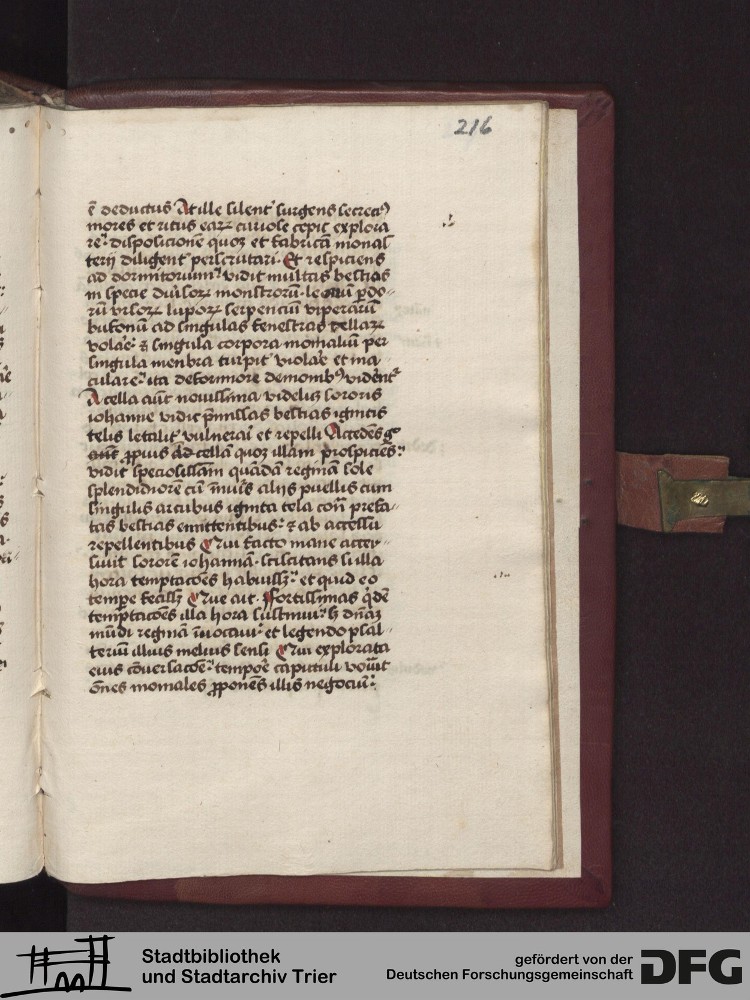 216
ē deductus At ille silent' surgens secreciꝰ
mores et ritus eaꝝ curiose cepit explora
re· disposicionē quoꝫ et fabricā monas
terij diligent' perscrutari· Et respiciens
ad dormitorium vidit multas bestias
in specie diu'soꝝ monstroꝝ· leonū pdo
rū vrsoꝝ lupoꝝ serpenciū viperarū
bufonū ad singulas fenestras cellaꝝ
volāe· ⁊ singula corpora monialiū per
singula menbra turpit' violāe et ma
culare· ita deformiore demonibꝰ vident'
A cella aūt nouissima videlicꝫ sororis
iohanne vidit p̄missas bestias ignitis
telis letalit' vulnerai et repelli Accedēs g̊
aūt ꝓpius ad cellā quoꝫ illam prospiciēs·
vidit speciosissīam quādā reginā sole
splendidiorē cū m̄uis alijs puellis cum
singulis arcubus ignita tela cont̄ prefa
tas bestias emittentibus· ⁊ ab accessu
repellentibus Qui facto mane acter
siuit sororē iohannā· sciscitans si illa
hora temptacōes habuissꝫ· et quid eo
tempe fecissꝫ Que ait· Fortissimas q̇dē
temptacōes illa hora sustinui· sꝫ dn̄aꝫ
mūdi reginā īuocaui· et legendo psal
teriū illius melius sensi Qui explorata
eius cōuersacōe· tempoē capituli vocauit
ōnes moniales ꝓponēs illis negociū·
Stadtbibliothek
und Stadtarchiv Trier
gefördert von der
Deutschen Forschungsgemeinschaft
DFG